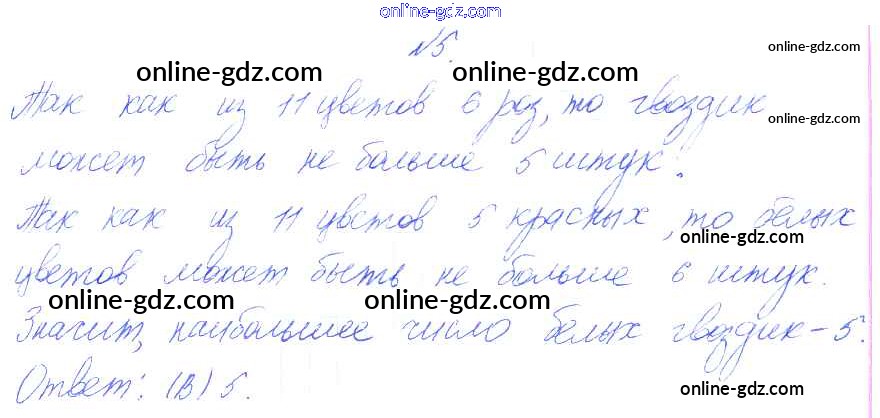 online-gdz.com
№5.
online-gdz.com
online-gdz.com
online-gdz.com
Так как из 11 цветов 6 роз, то гвоздик
online-gdz.com
может быть не больше 5 штук.
Так как из 11 цветов 5 красных, то белых
online-gdz.com
цветов может быть не больше 6 штук.
online-gdz.com
online-gdz.com
Значит, наибольшее число белых гвоздик – 5.
Ответ: (В) 5.
online-gdz.com